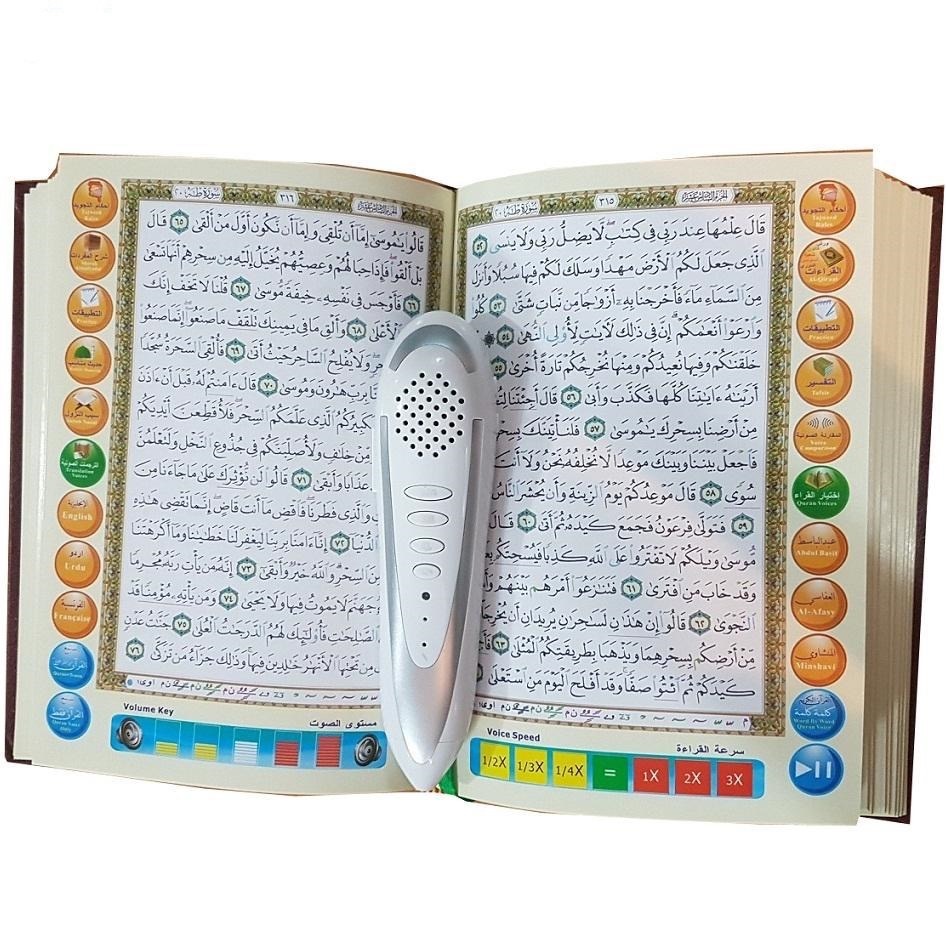 الجزء السادس عشر ٣١٥ سورة طه ٢٠
قَالَ عِلْمُهَا عِندَ رَبِّي فِي كِتَٰبٍ لَّا يَضِلُّ رَبِّي وَلَا يَنسَى ٥٢
ٱلَّذِي جَعَلَ لَكُمُ ٱلْأَرْضَ مَهْدًا وَسَلَكَ لَكُمْ فِيهَا سُبُلًا وَأَنزَلَ
مِنَ ٱلسَّمَآءِ مَآءً فَأَخْرَجْنَا بِهِۦٓ أَزْوَٰجًا مِّن نَّبَاتٍ شَتَّىٰ ٥٣ كُلُوا۟
وَٱرْعَوْا۟ أَنْعَٰمَكُمْ إِنَّ فِي ذَٰلِكَ لَءَايَٰتٍ لِّأُو۟لِي ٱلنُّهَىٰ ٥٤
خَلَقْنَٰكُمْ وَفِيهَا نُعِيدُكُمْ وَمِنْهَا نُخْرِجُكُمْ تَارَةً أُخْرَىٰ ٥٥
أَرَيْنَٰهُ ءَايَٰتِنَا كُلَّهَا فَكَذَّبَ وَأَبَىٰ ٥٦ قَالَ أَجِئْتَنَا
مِنْ أَرْضِنَا بِسِحْرِكَ يَٰمُوسَىٰ ٥٧ فَلَنَأْتِيَنَّكَ بِسِحْرٍ
فَٱجْعَلْ بَيْنَنَا وَبَيْنَكَ مَوْعِدًا لَّا نُخْلِفُهُۥ نَحْنُ وَلَآ أَنتَ
سُوًى ٥٨ قَالَ مَوْعِدُكُمْ يَوْمُ ٱلزِّينَةِ وَأَن يُحْشَرَ ٱلنَّاسُ
٥٩ فَتَوَلَّىٰ فِرْعَوْنُ فَجَمَعَ كَيْدَهُۥ ثُمَّ أَتَىٰ ٦٠ قَالَ
مُّوسَىٰ وَيْلَكُمْ لَا تَفْتَرُوا۟ عَلَى ٱللَّهِ كَذِبًا فَيُسْحِتَكُم
وَقَدْ خَابَ مَنِ ٱفْتَرَىٰ ٦١ فَتَنَٰزَعُوٓا۟ أَمْرَهُم بَيْنَهُمْ
ٱلنَّجْوَىٰ ٦٢ قَالُوٓا۟ إِنْ هَٰذَٰنِ لَسَٰحِرَٰنِ يُرِيدَانِ أَن يُخْرِجَاكُم
مِّنْ أَرْضِكُم بِسِحْرِهِمَا وَيَذْهَبَا بِطَرِيقَتِكُمُ ٱلْمُثْلَىٰ ٦٣ فَأَجْمِعُوا۟
كَيْدَكُمْ ثُمَّ ٱئْتُوا۟ صَفًّا وَقَدْ أَفْلَحَ ٱلْيَوْمَ مَنِ ٱسْتَعْلَىٰ
أحكام التجويد
Tajweed Rules
القراءات
Al-Qiraat
التطبيقات
Practice
التفسير
Tafsir
المقارنة الصوتية
Voice Comparison
اختيار القراء
Quran Voices
عبدالباسط
Abdul Basit
العفاسي
Al-Afasy
المنشاوي
Minshavi
كلمة كلمة
Word By Word
Quran Voice
Voice Speed سرعة القراءة
1/2X 1/3X 1/4X = 1X 2X 3X
سورة طه ٢٠ ٣١٦ الجزء السادس عشر
قَالُوا۟ يَٰمُوسَىٰٓ إِمَّآ أَن تُلْقِيَ وَإِمَّآ أَن نَّكُونَ أَوَّلَ مَنْ أَلْقَىٰ ٦٥ قَالَ
بَلْ أَلْقُوا۟ فَإِذَا حِبَالُهُمْ وَعِصِيُّهُمْ يُخَيَّلُ إِلَيْهِ مِن سِحْرِهِمْ أَنَّهَا تَسْعَىٰ
٦٦ فَأَوْجَسَ فِي نَفْسِهِۦ خِيفَةً مُّوسَىٰ ٦٧ قُلْنَا لَا تَخَفْ إِنَّكَ
ٱلْأَعْلَىٰ ٦٨ وَأَلْقِ مَا فِي يَمِينِكَ تَلْقَفْ مَا صَنَعُوٓا۟ إِنَّمَا صَنَعُوا۟
وَلَا يُفْلِحُ ٱلسَّاحِرُ حَيْثُ أَتَىٰ ٦٩ فَأُلْقِيَ ٱلسَّحَرَةُ سُجَّدًا
بِرَبِّ هَٰرُونَ وَمُوسَىٰ ٧٠ قَالَ ءَامَنتُمْ لَهُۥ قَبْلَ أَنْ ءَاذَنَ
لَكَبِيرُكُمُ ٱلَّذِي عَلَّمَكُمُ ٱلسِّحْرَ فَلَأُقَطِّعَنَّ أَيْدِيَكُمْ
مِّنْ خِلَٰفٍ وَلَأُصَلِّبَنَّكُمْ فِي جُذُوعِ ٱلنَّخْلِ وَلَتَعْلَمُنَّ
عَذَابًا وَأَبْقَىٰ ٧١ قَالُوا۟ لَن نُّؤْثِرَكَ عَلَىٰ مَا جَآءَنَا مِنَ
وَٱلَّذِي فَطَرَنَا فَٱقْضِ مَآ أَنتَ قَاضٍ إِنَّمَا تَقْضِي هَٰذِهِ
ٱلدُّنْيَآ ٧٢ إِنَّآ ءَامَنَّا بِرَبِّنَا لِيَغْفِرَ لَنَا خَطَٰيَٰنَا وَمَآ أَكْرَهْتَنَا
مِنَ ٱلسِّحْرِ وَٱللَّهُ خَيْرٌ وَأَبْقَىٰٓ ٧٣ إِنَّهُۥ مَن يَأْتِ رَبَّهُۥ مُجْرِمًا
جَهَنَّمَ لَا يَمُوتُ فِيهَا وَلَا يَحْيَىٰ ٧٤ وَمَن يَأْتِهِۦ مُؤْمِنًا قَدْ
ٱلصَّٰلِحَٰتِ فَأُو۟لَٰٓئِكَ لَهُمُ ٱلدَّرَجَٰتُ ٱلْعُلَىٰ ٧٥ جَنَّٰتُ عَدْنٍ
مِن تَحْتِهَا ٱلْأَنْهَٰرُ خَٰلِدِينَ فِيهَا وَذَٰلِكَ جَزَآءُ مَن تَزَكَّىٰ ٧٦
أحكام التجويد
Tajweed Rules
شرح المفردات
التطبيقات
Practice
حديث مناسب
سبب النزول
الترجمات الصوتية
Translation Voices
الإنجليزية
English
اردو
Urdu
الفرنسية
Française
القرآن فقط
Volume Key مستوى الصوت